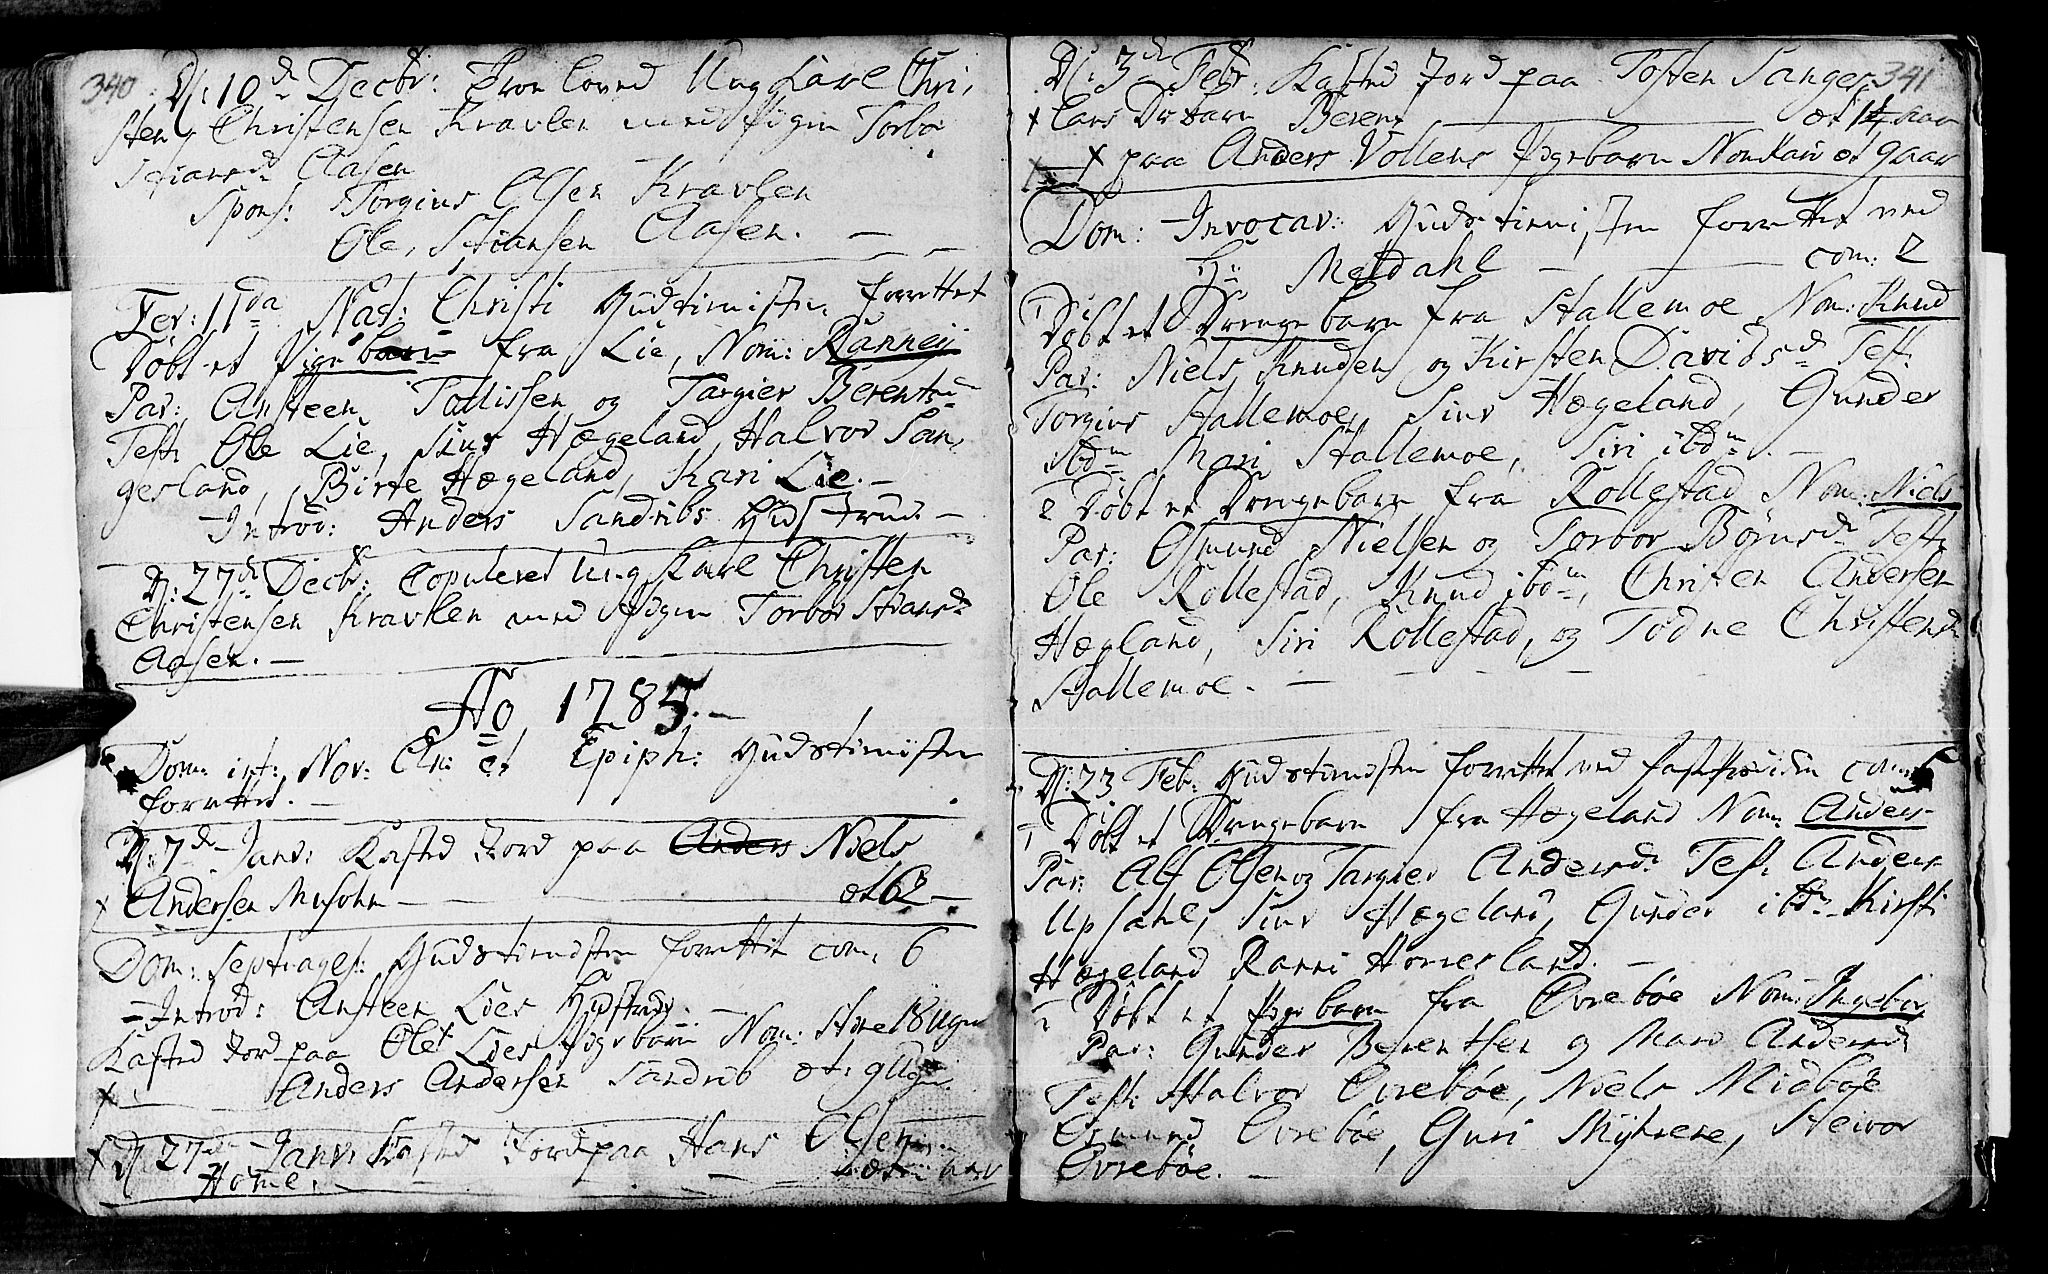 340
D: 10de Decbr: Troloved Ung Karl Chri-
sten Christensen Kravlen med Pigen Torbor
Stiansd. Aasen
Spons: Torgius Olsen Kravlen
Ole Stiansen Aasen. —
Fer: 11da Nat: Christi Gudstienisten forrettet
Døbt et Pigebarn fra Lie, Nom: Ranneij
Par: Ansteen Tallissen og Targier Berentsd.
Test: Ole Lie, Siur Hægeland, Halvor San-
gesland, Birte Hægeland, Kari Lie. —
Introd: Anders Sandribs Hustrue —
D: 27de Decbr: Copuleret Ung Karl Christen
Christensen Kravlen med Pigen Torbor Stiansd.
Aasen. —
Ao 1785. —
Dom: int: Nov: An: et Epiph: Gudstienisten
forrettet. —
D: 7de Janv: Kasted Jord paa Anders Niels
x Andersen Mushom — æt 62 —
Dom: Septuages: Gudstienisten forrettet com: 6
— Introd: Ansteen Lies Hustrue. —
Kasted Jord paa Ole Lies Pigebarn Nom: 18 Uger
x Anders Andersen Sandrib æt: 9 Uger
x D: 27de Janv: Kasted Jord paa Hans Olsen
Home. —
341
D: 3de Febr: Kasted Jord paa Tosten Sanges-
x lans Drebarn Berent — æt 14 aar
x paa Anders Vollens Pigebarn Nom Kari æt 9 aar
Dom: Invocav: Gudstienisten forrettet ved
Hr: Meldahl — com: 2
1 Døbt et Drengebarn fra Stallemoe Nom: Knud
Par: Niels Knudsen og Kirsten Davidsd. Test:
Torgius Stallemoe, Siur Hægeland, Gunder
ibdm Mari Stallemoe, Siri ibdm. —
2 Døbt et Drengebarn fra Rollestad Nom: Niels
Par: Osmund Nielsen og Torbor Biørnsd. Test:
Ole Rollestad, Knud ibdm, Christen Andersen
Hægland, Siri Rollestad, og Todne Christensd.
Stallemoe. —
D: 23 Feb: Gudstienisten forrettet ved com:
1 Døbt et Drengebarn fra Hægeland Nom: Anders
Par: Alf Olsen og Targier Andersd. Test: Anders
Upsahl, Siur Hægeland, Gunder ibdm Kirsti
Hægeland Ranni Horresland. —
2 Døbt et Pigebarn fra Øvrebøe Nom: Ingebor
Par: Gunder Berentsen og Mari Andersd
Test: Halvor Øvrebøe, Niels Midbøe
Osmund Øvrebøe, Guri Myhrene, Steivor
Øvrebøe. —